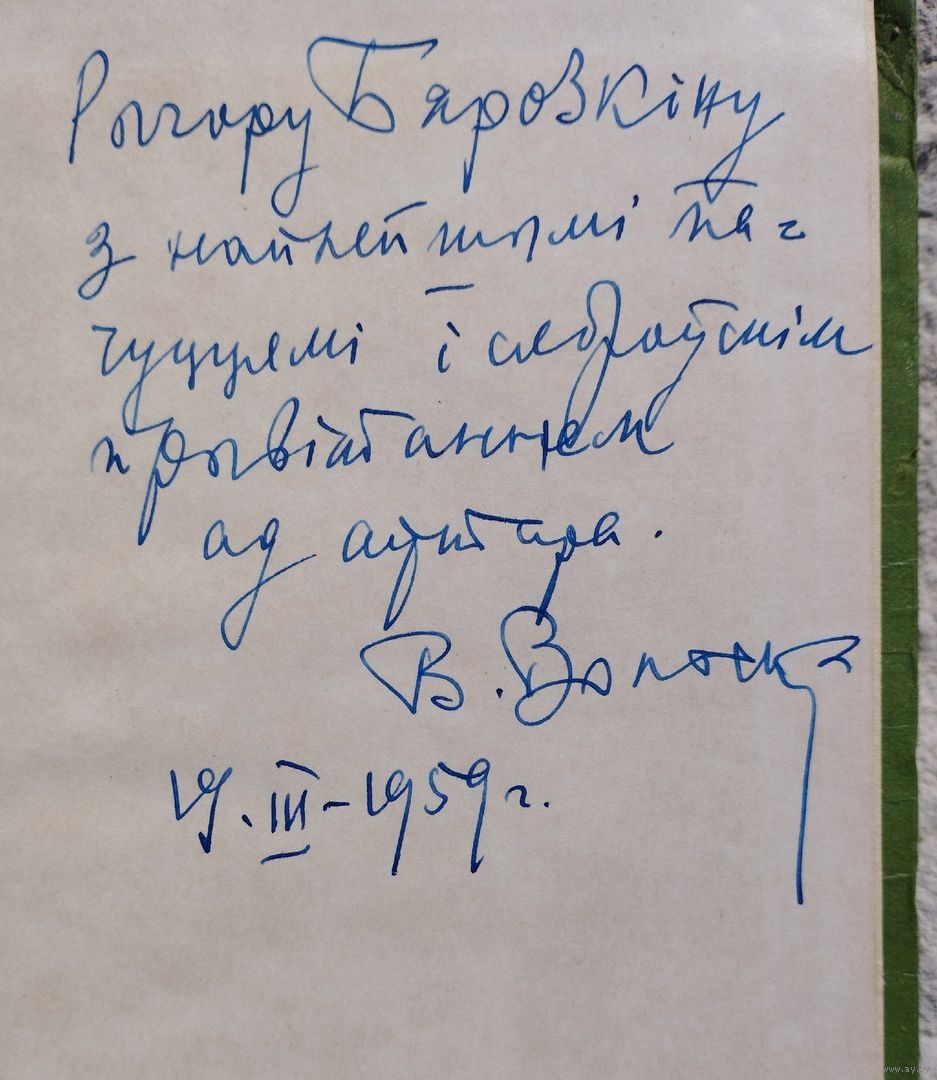 Рыгору Бярозкіну
з найлепшымі па=
чуццямі і сяброўскім
прывітаннем
ад аўтара.
В. Вольскі
19.III-1959 г.
www.ay.by